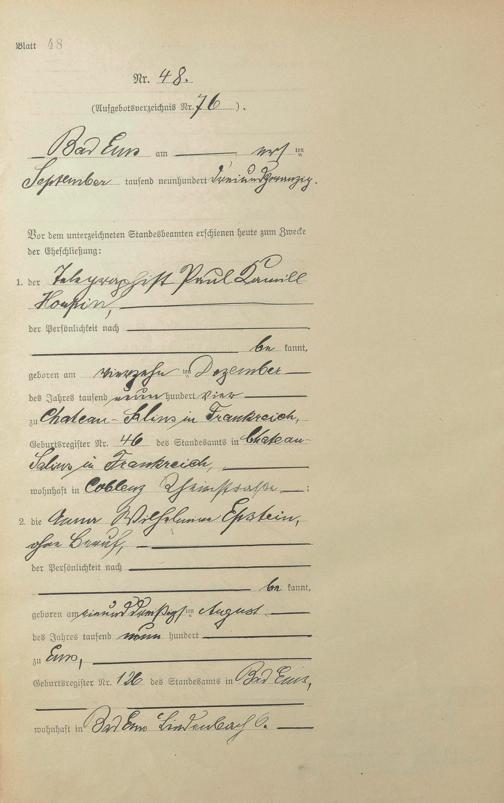 Blatt 48
Nr. 48.
(Aufgebotsverzeichnis Nr. 76).
Bad Ems am ersten
September tausend neunhundert dreiundzwanzig.
Vor dem unterzeichneten Standesbeamten erschienen heute zum Zwecke
der Eheschließung:
1. der Telegraphist Paul Kamill
der Persönlichkeit nach
be kannt,
geboren am vierzehnten Dezember
des Jahres tausend neun hundert vier
zu Chateau-Salins in Frankreich,
Geburtsregister Nr. 46 des Standesamts in Chateau-
Salins in Frankreich,
wohnhaft in Coblenz Rheinstraße;
2. die Anna Wilhelmine Epstein,
ohne Beruf,
der Persönlichkeit nach
be kannt,
geboren am einunddreißigsten August
des Jahres tausend neun hundert
zu Ems,
Geburtsregister Nr. 126 des Standesamts in Bad Ems,
wohnhaft in Bad Ems Lindenbach 6.